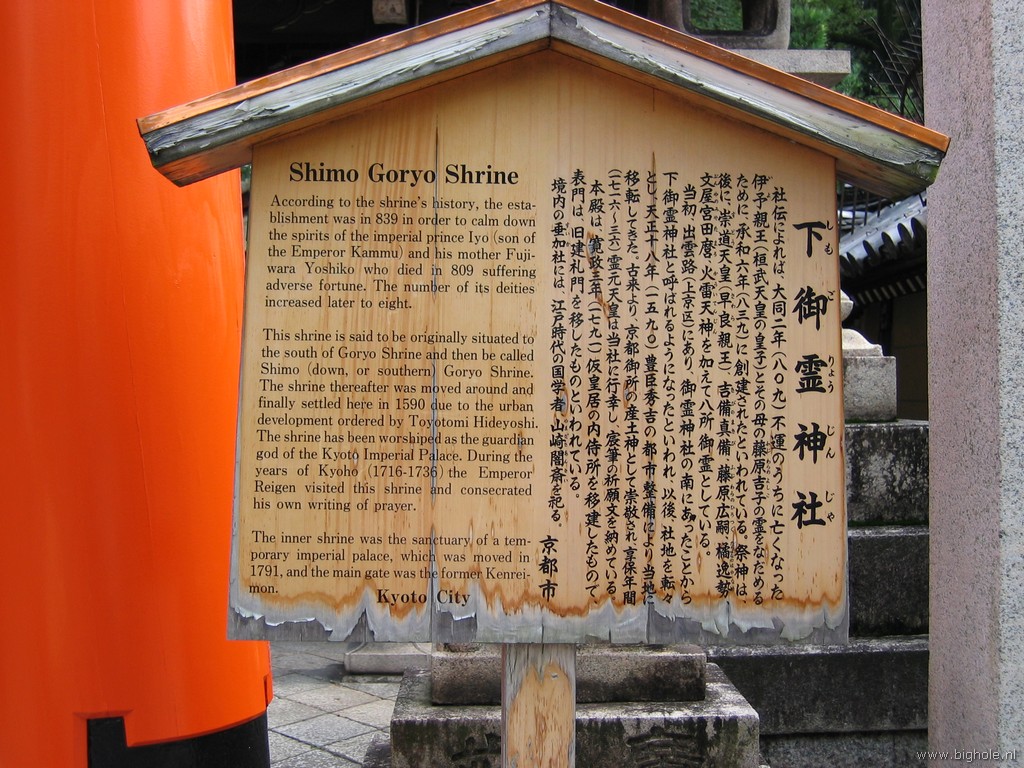 Shimo Goryo Shrine
According to the shrine's history, the esta-
blishment was in 839 in order to calm down
the spirits of the imperial prince Iyo (son of
the Emperor Kammu) and his mother Fuji-
wara Yoshiko who died in 809 suffering
adverse fortune. The number of its deities
increased later to eight.
This shrine is said to be originally situated to
the south of Goryo Shrine and then be called
Shimo (down, or southern) Goryo Shrine.
The shrine thereafter was moved around and
finally settled here in 1590 due to the urban
development ordered by Toyotomi Hideyoshi.
The shrine has been worshiped as the guardian
god of the Kyoto Imperial Palace. During the
years of Kyoho (1716-1736) the Emperor
Reigen visited this shrine and consecrated
his own writing of prayer.
The inner shrine was the sanctuary of a tem-
porary imperial palace, which was moved in
1791, and the main gate was the former Kenrei-
mon.
Kyoto City
下御霊神社
しもごりょうじんじゃ
社伝によれば、大同二年（八〇九）不運のうちに亡くなった
伊予親王（桓武天皇の皇子）とその母の藤原吉子の霊をなだめる
ために、承和六年（八三九）に創建されたといわれている。祭神は、
後に、崇道天皇（早良親王）、吉備真備、藤原広嗣、橘逸勢、
文屋宮田麿、火雷天神を加えて八所御霊としている。
当初、出雲路（上京区）にあり、御霊神社の南にあったことから
下御霊神社と呼ばれるようになったといわれ、以後、社地を転々
とし、天正十八年（一五九〇）豊臣秀吉の都市整備により当地に
移転してきた。古来より、京都御所の産土神として崇敬され、享保年間
（一七一六〜三六）霊元天皇は当社に行幸し、宸筆の祈願文を納めている。
本殿は、寛政三年（一七九一）仮皇居の内侍所を移建したもので、
表門は、旧建礼門を移したものといわれている。
境内の垂加社には、江戸時代の国学者、山崎闇斎を祀る。
京都市
www.bighole.nl